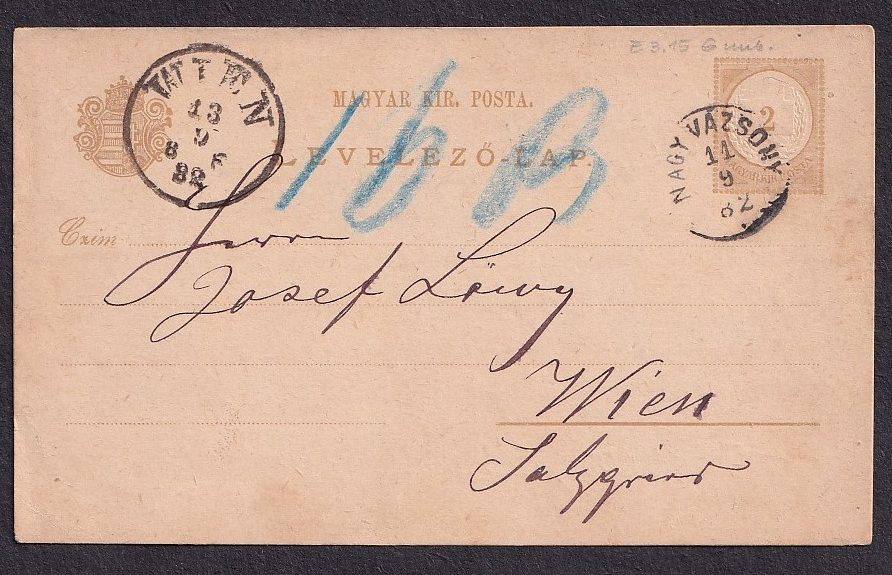 E 3.15 G
WIEN
13
9
8 6
82
MAGYAR KIR. POSTA.
LEVELEZŐ-LAP.
2
NAGY VÁZSONY
11
9
82
16
Czim
Herrn
Josef Löwy
Wien
Salzgries